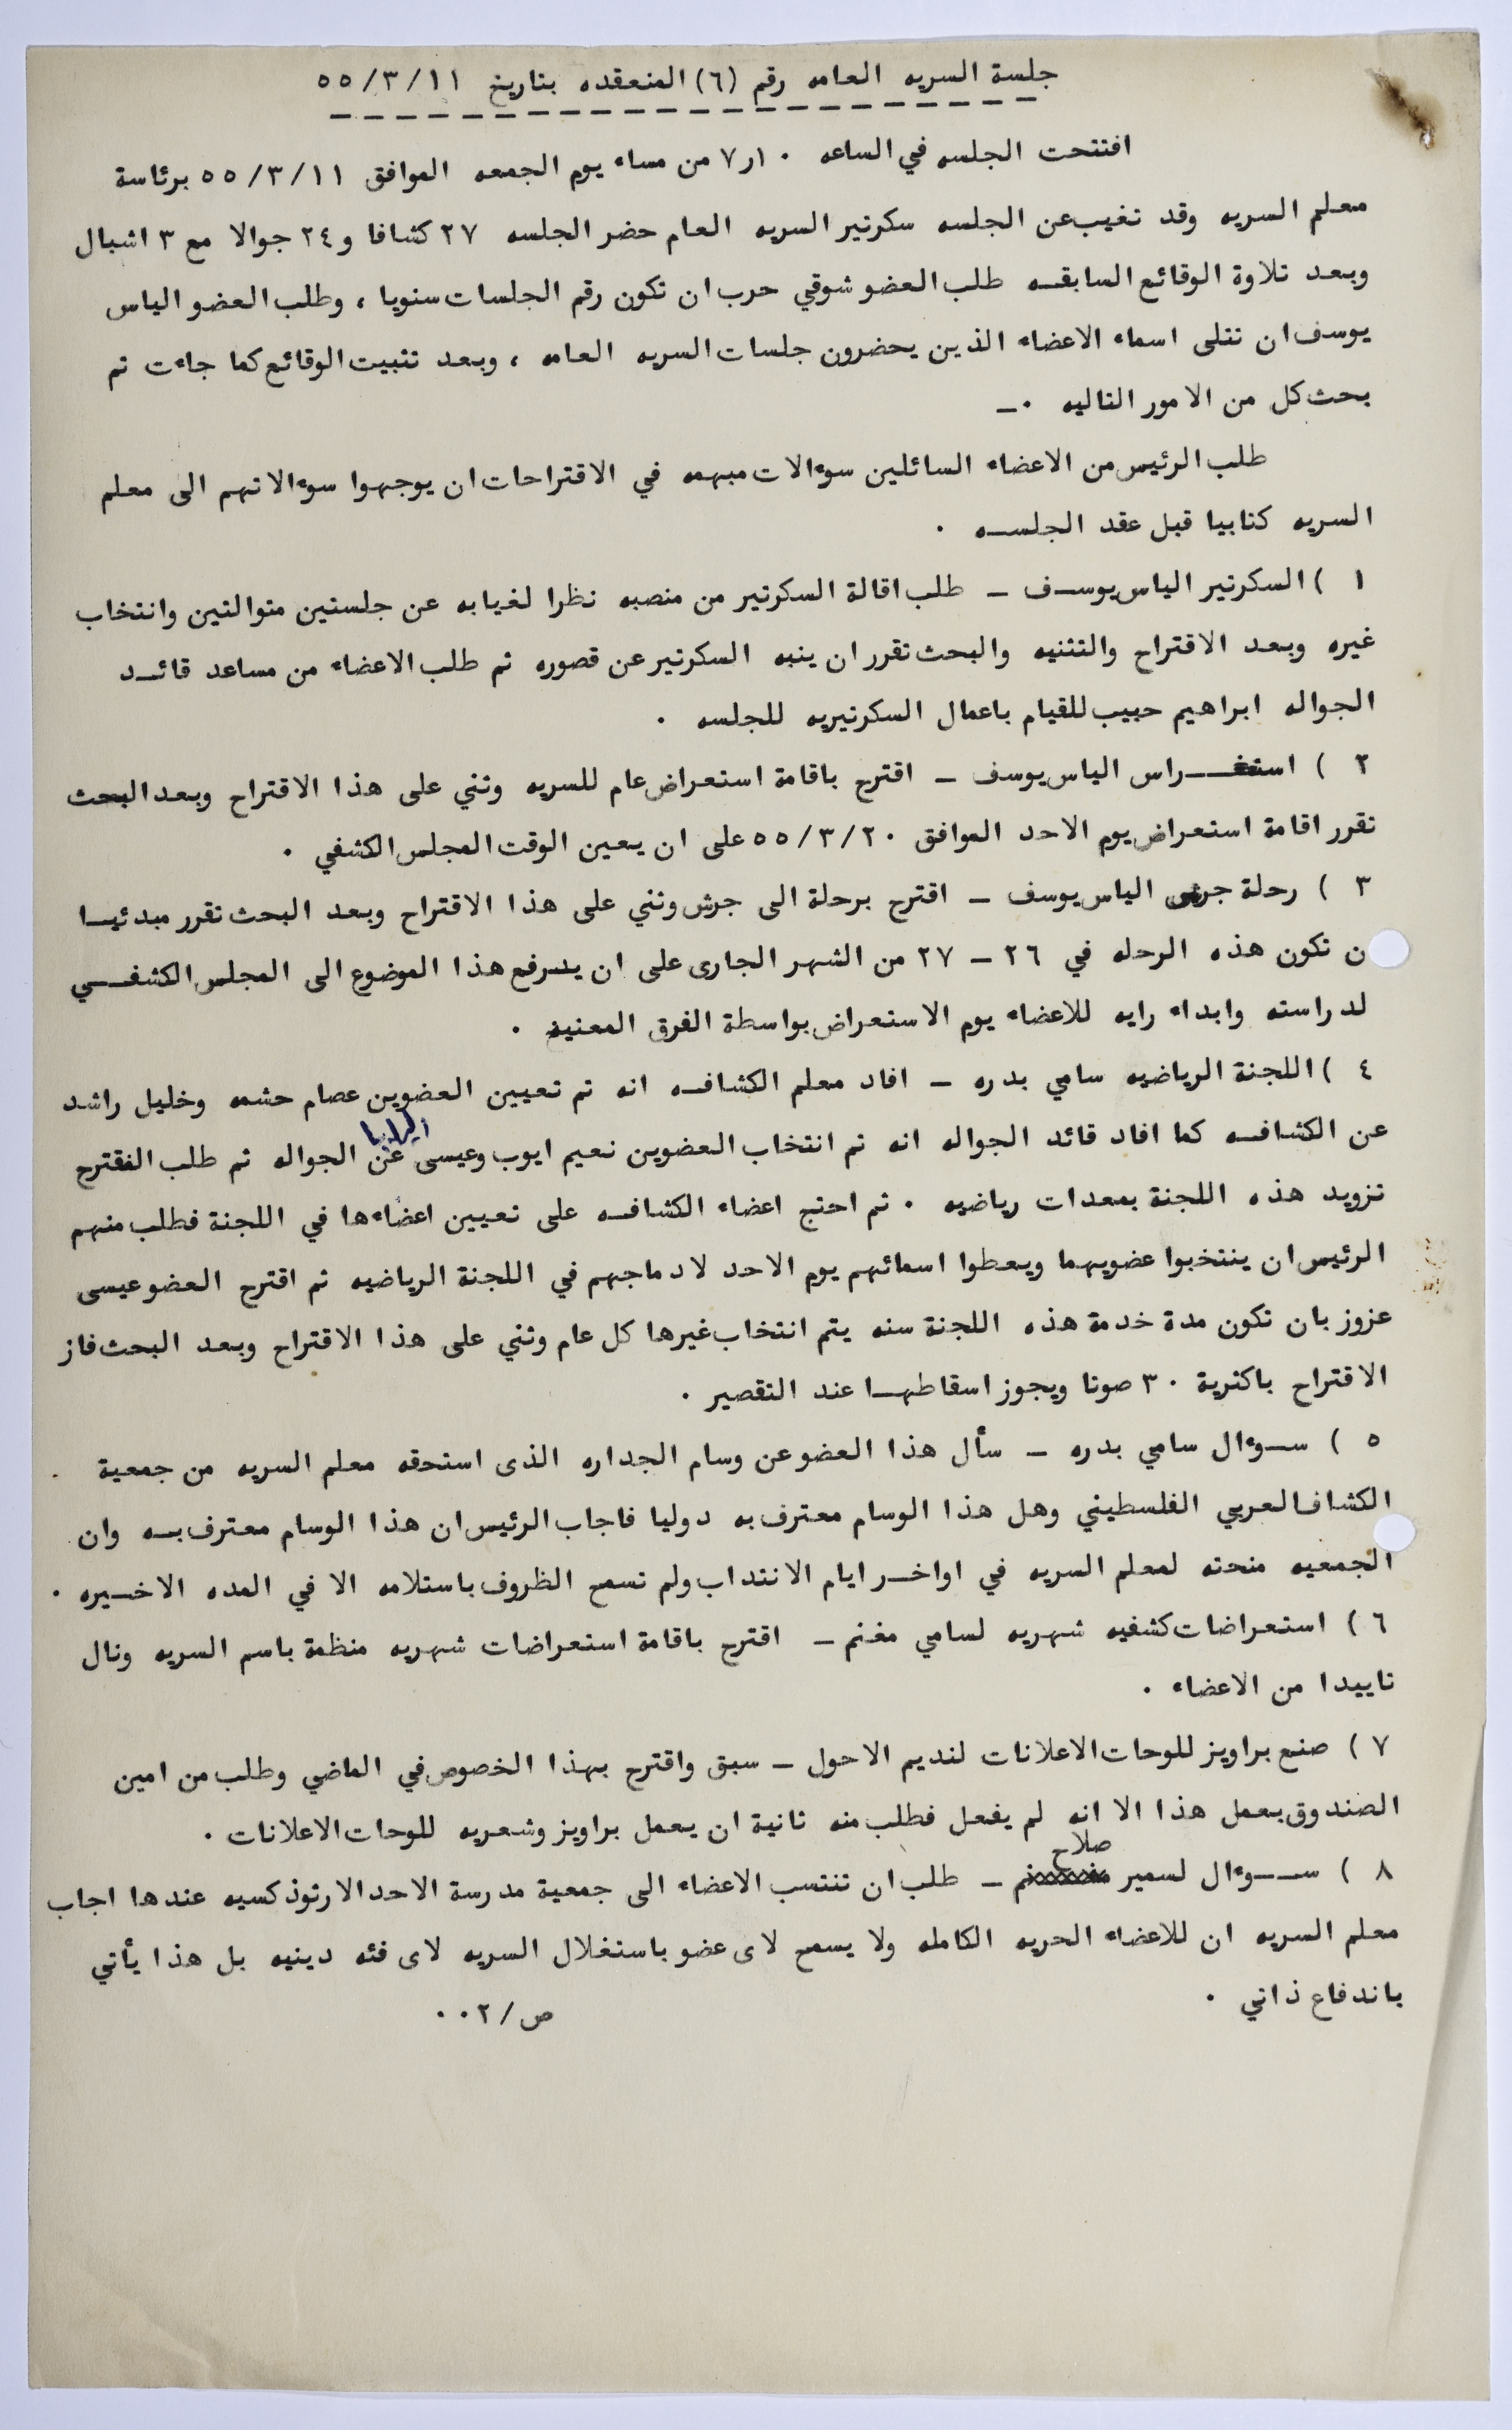 جلسة السريه العامه رقم (٦) المنعقده بتاريخ ٥٥/٣/١١
افتتحت الجلسه في الساعه ٧٫١٠ من مساء يوم الجمعه الموافق ٥٥/٣/١١ برئاسة
معلم السريه وقد تغيب عن الجلسه سكرتير السريه العام حضر الجلسه ٢٧ كشافا و٢٤ جوالا مع ٣ اشبال
وبعد تلاوة الوقائع السابقه طلب العضو شوقي حرب ان تكون رقم الجلسات سنويا ، وطلب العضو الياس
يوسف ان تتلى اسماء الاعضاء الذين يحضرون جلسات السريه العامه ، وبعد تثبيت الوقائع كما جاءت تم
بحث كل من الامور التاليه ٠ــ
طلب الرئيس من الاعضاء السائلين سوءالات مبهمه في الاقتراحات ان يوجهوا سوءالاتهم الى معلم
السريه كتابيا قبل عقد الجلســه ٠
١ ) السكرتير الياس يوســف ــ طلب اقالة السكرتير من منصبه نظرا لغيابه عن جلستين متوالتين وانتخاب
غيره وبعد الاقتراح والتثنيه والبحث تقرر ان ينبه السكرتير عن قصوره ثم طلب الاعضاء من مساعد قائــد
الجواله ابراهيم حبيب للقيام باعمال السكرتيريه للجلسه ٠
٢ ) استعــراس الياس يوسف ــ اقترح باقامة استعراض عام للسريه وثني على هذا الاقتراح وبعد البحث
تقرر اقامة استعراض يوم الاحد الموافق ٥٥/٣/٢٠ على ان يعين الوقت المجلس الكشفي ٠
٣ ) رحلة جرش الياس يوسف ــ اقترح برحلة الى جرش وثني على هذا الاقتراح وبعد البحث تقرر مبدئيــا
ن تكون هذه الرحله في ٢٦ ــ ٢٧ من الشهر الجارى على ان يــرفع هذا الموضوع الى المجلس الكشفــي
لدراسته وابداء رايه للاعضاء يوم الاستعراض بواسطة الفرق المعنيه ٠
٤ ) اللجنة الرياضيه سامي بدره ــ افاد معلم الكشافه انه تم تعيين العضوين عصام حشمه وخليل راشد
عن الكشافه كما افاد قائد الجواله انه تم انتخاب العضوين نعيم ايوب وعيسى عن الجواله ثم طلب المقترح
تزويد هذه اللجنة بمعدات رياضيه ٠ ثم احتج اعضاء الكشافه على تعيين اعضاءها في اللجنة فطلب منهم
الرئيس ان ينتخبوا عضويهما ويعطوا اسمائهم يوم الاحد لادماجهم في اللجنة الرياضيه ثم اقترح العضو عيسى
عزوز بان تكون مدة خدمة هذه اللجنة سنه يتم انتخاب غيرها كل عام وثني على هذا الاقتراح وبعد البحث فاز
الاقتراح باكثرية ٣٠ صوتا ويجوز اسقاطهــا عند التقصير ٠
٥ ) ســوءال سامي بدره ــ سأل هذا العضو عن وسام الجداره الذى استحقه معلم السريه من جمعية
الكشاف العربي الفلسطيني وهل هذا الوسام معترف به دوليا فاجاب الرئيس ان هذا الوسام معترف بــه وان
الجمعيه منحته لمعلم السريه في اواخــر ايام الانتداب ولم تسمح الظروف باستلامه الا في المده الاخــيره ٠
٦ ) استعراضات كشفيه شهريه لسامي مغنم ــ اقترح باقامة استعراضات شهريه منظمة باسم السريه ونال
تاييدا من الاعضاء ٠
٧ ) صنع براويز للوحات الاعلانات لنديم الاحول ــ سبق واقترح بهذا الخصوص في الماضي وطلب من امين
الصندوق بعمل هذا الا انه لم يفعل فطلب منه ثانية ان يعمل براويز وشعريه للوحات الاعلانات ٠
صلاح
٨ ) ســـوءال لسمير ــ طلب ان تنتسب الاعضاء الى جمعية مدرسة الاحد الارثوذكسيه عندها اجاب
معلم السريه ان للاعضاء الحريه الكامله ولا يسمح لاى عضو باستغلال السريه لاى فئه دينيه بل هذا يأتي
باندفاع ذاتي ٠
ص/٢٠٠